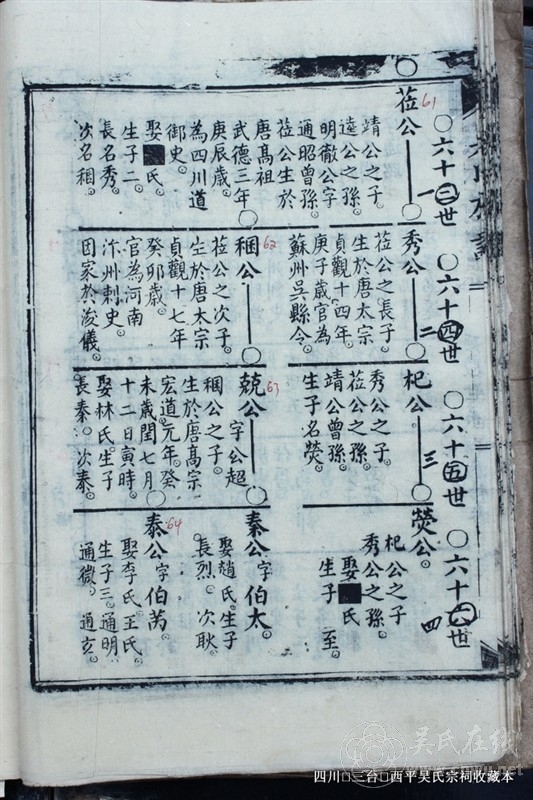 六十三世
六十四世
六十五世
六十六世
莅公
61
一
靖公之子
逵公之孫
明徹公字
通昭曾孫
莅公生於
唐高祖
武德三年
庚辰歲
為四川道
御史
娶 氏
生子二
長名秀
次名稇
秀公
二
莅公之長子
生於唐太宗
貞觀十四年
庚子歲官為
蘇州吳縣令
稇公
62
莅公之次子
生於唐太宗
貞觀十七年
癸卯歲
官為河南
汴州刺史
因家於浚儀
杞公
三
秀公之子
莅公之孫
靖公曾孫
生子名熒
兢公字公超
63
稇公之子
生於唐高宗
宏道元年癸
未歲閏七月
十二日寅時
娶林氏生子
長秦 次泰
熒公
四
杞公之子
秀公之孫
娶 氏
生子 至
秦公字伯太
娶趙氏生子
長烈 次耿
泰公字伯芳
64
娶李氏王氏
生子三 通明
通微 通玄
吴氏在线
四川 三台 西平吴氏宗祠收藏本